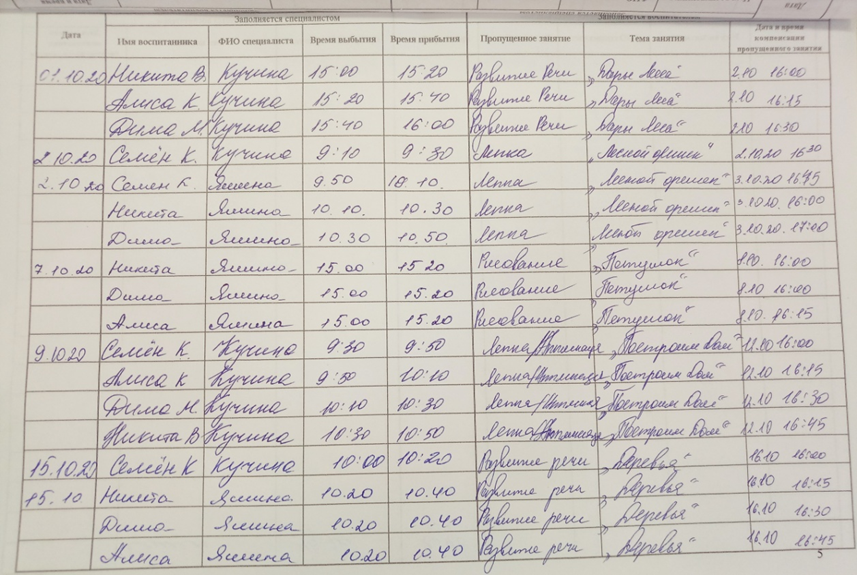 Заполняется специалистом
Дата Имя воспитанника ФИО специалиста Время выбытия Время прибытия Пропущенное занятие Тема занятия Дата и время компенсации пропущенного занятия
01.10.20 Никита В. Кучина 15:00 15:20 Развитие Речи „Дары Леса“ 2.10 16:00
Алиса К. Кучина 15:20 15:40 Развитие Речи „Дары Леса“ 2.10 16:15
Дима М. Кучина 15:40 16:00 Развитие Речи „Дары Леса“ 2.10 16:30
2.10.20 Семён К. Кучина 9:10 9:30 Лепка „Лесной орешек“ 2.10.20 16:30
2.10.20 Семен К. Яшина 9.50 10 10. Лепка „Лесной орешек“ 3.10.20 16:45
Никита Яшина 10.10. 10.30 Лепка „Лесной орешек“ 3.10.20. 16:00
Дима Яшина 10.30 10.50. Лепка Лесной орешек“ 3.10.20. 17:00
7.10.20 Никита Яшина 15.00 15 20 Рисование „Петушок“ 8.10. 16:00
Дима Яшина 15.00 15.20 Рисование Петушок“ 8.10 16:00
Алиса Яшина 15.00 15.20 Рисование „Петушок“ 8.10. 16:15
9.10.20 Семён К. Кучина 9:30 9:50 Лепка/ „Построим Дом“ 12.10 16:00
Алиса К Кучина 9:50 10:10 Лепка/ „Построим Дом“ 12.10 16:15
Дима М. Кучина 10:10 10:30 Лепка/ „Построим Дом“ 12.10 16:30
Никита В Кучина 10:30 10:50 Лепка/ „Построим Дом“ 12.10 16:45
15.10.20 Семён К Кучина 10:00 10:20 Развитие речи „Деревья“ 16.10 16:00
15.10 Никита Яшина 10.20 10.40 Развитие речи „Деревья“ 16.10 16:15
Дима Яшина 10.20 10.40 Развитие речи „Деревья“ 16.10 16:30
Алиса Яшина 10.20 10.40 Развитие речи „Деревья“ 16.10 16:45
5